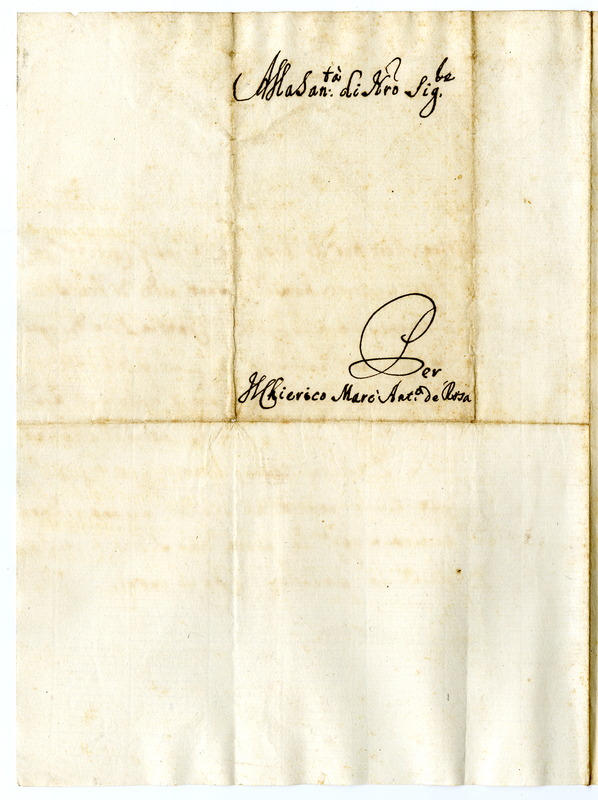 Alla San.tà di Nro Sig.re
Per
Il Chierico Marc'Ant.o de Rosa